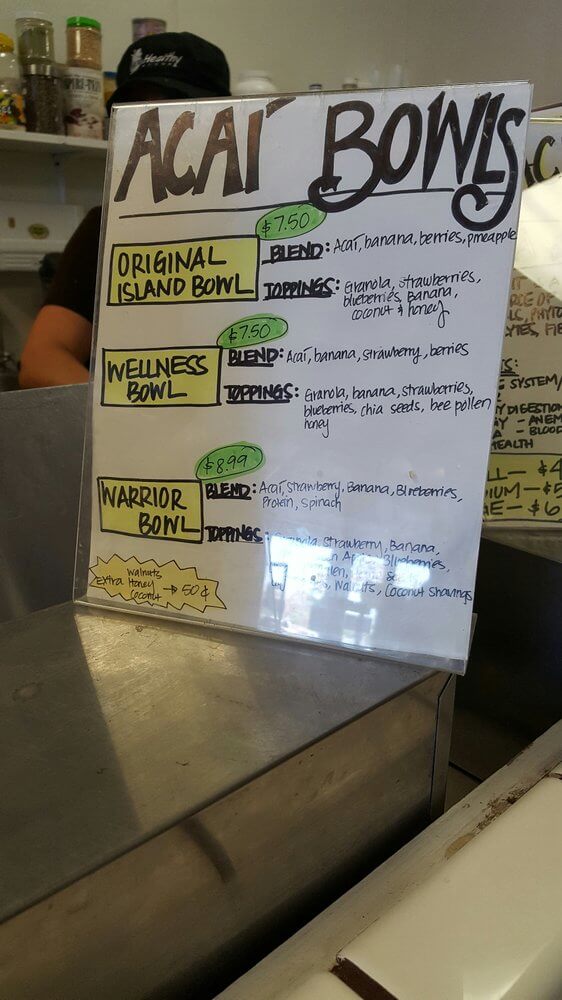 Healthy
ACAÍ BOWLS
$7.50
ORIGINAL
ISLAND BOWL
BLEND: Acaí, banana, berries, pineapple
TOPPINGS: Granola, strawberries,
blueberries, Banana,
coconut & honey
$7.50
WELLNESS
BOWL
BLEND: Acaí, banana, strawberry, berries
TOPPINGS: Granola, banana, strawborries,
blueberries, chia seeds, bee pollen
honey
$8.99
WARRIOR
BOWL
BLEND: Acaí, Strawberry, Banana, Blueberries,
Protein, Spinach
TOPPINGS: Strawberry, Banana,
Blueberries,
Walnuts, Coconut Shavings
Extra Walnuts
Honey
Coconut → 50¢
SYSTEM/
DIGESTION
- ANEM
- BLOOD
HEALTH
LL - $4
IUM - $5
GE - $6